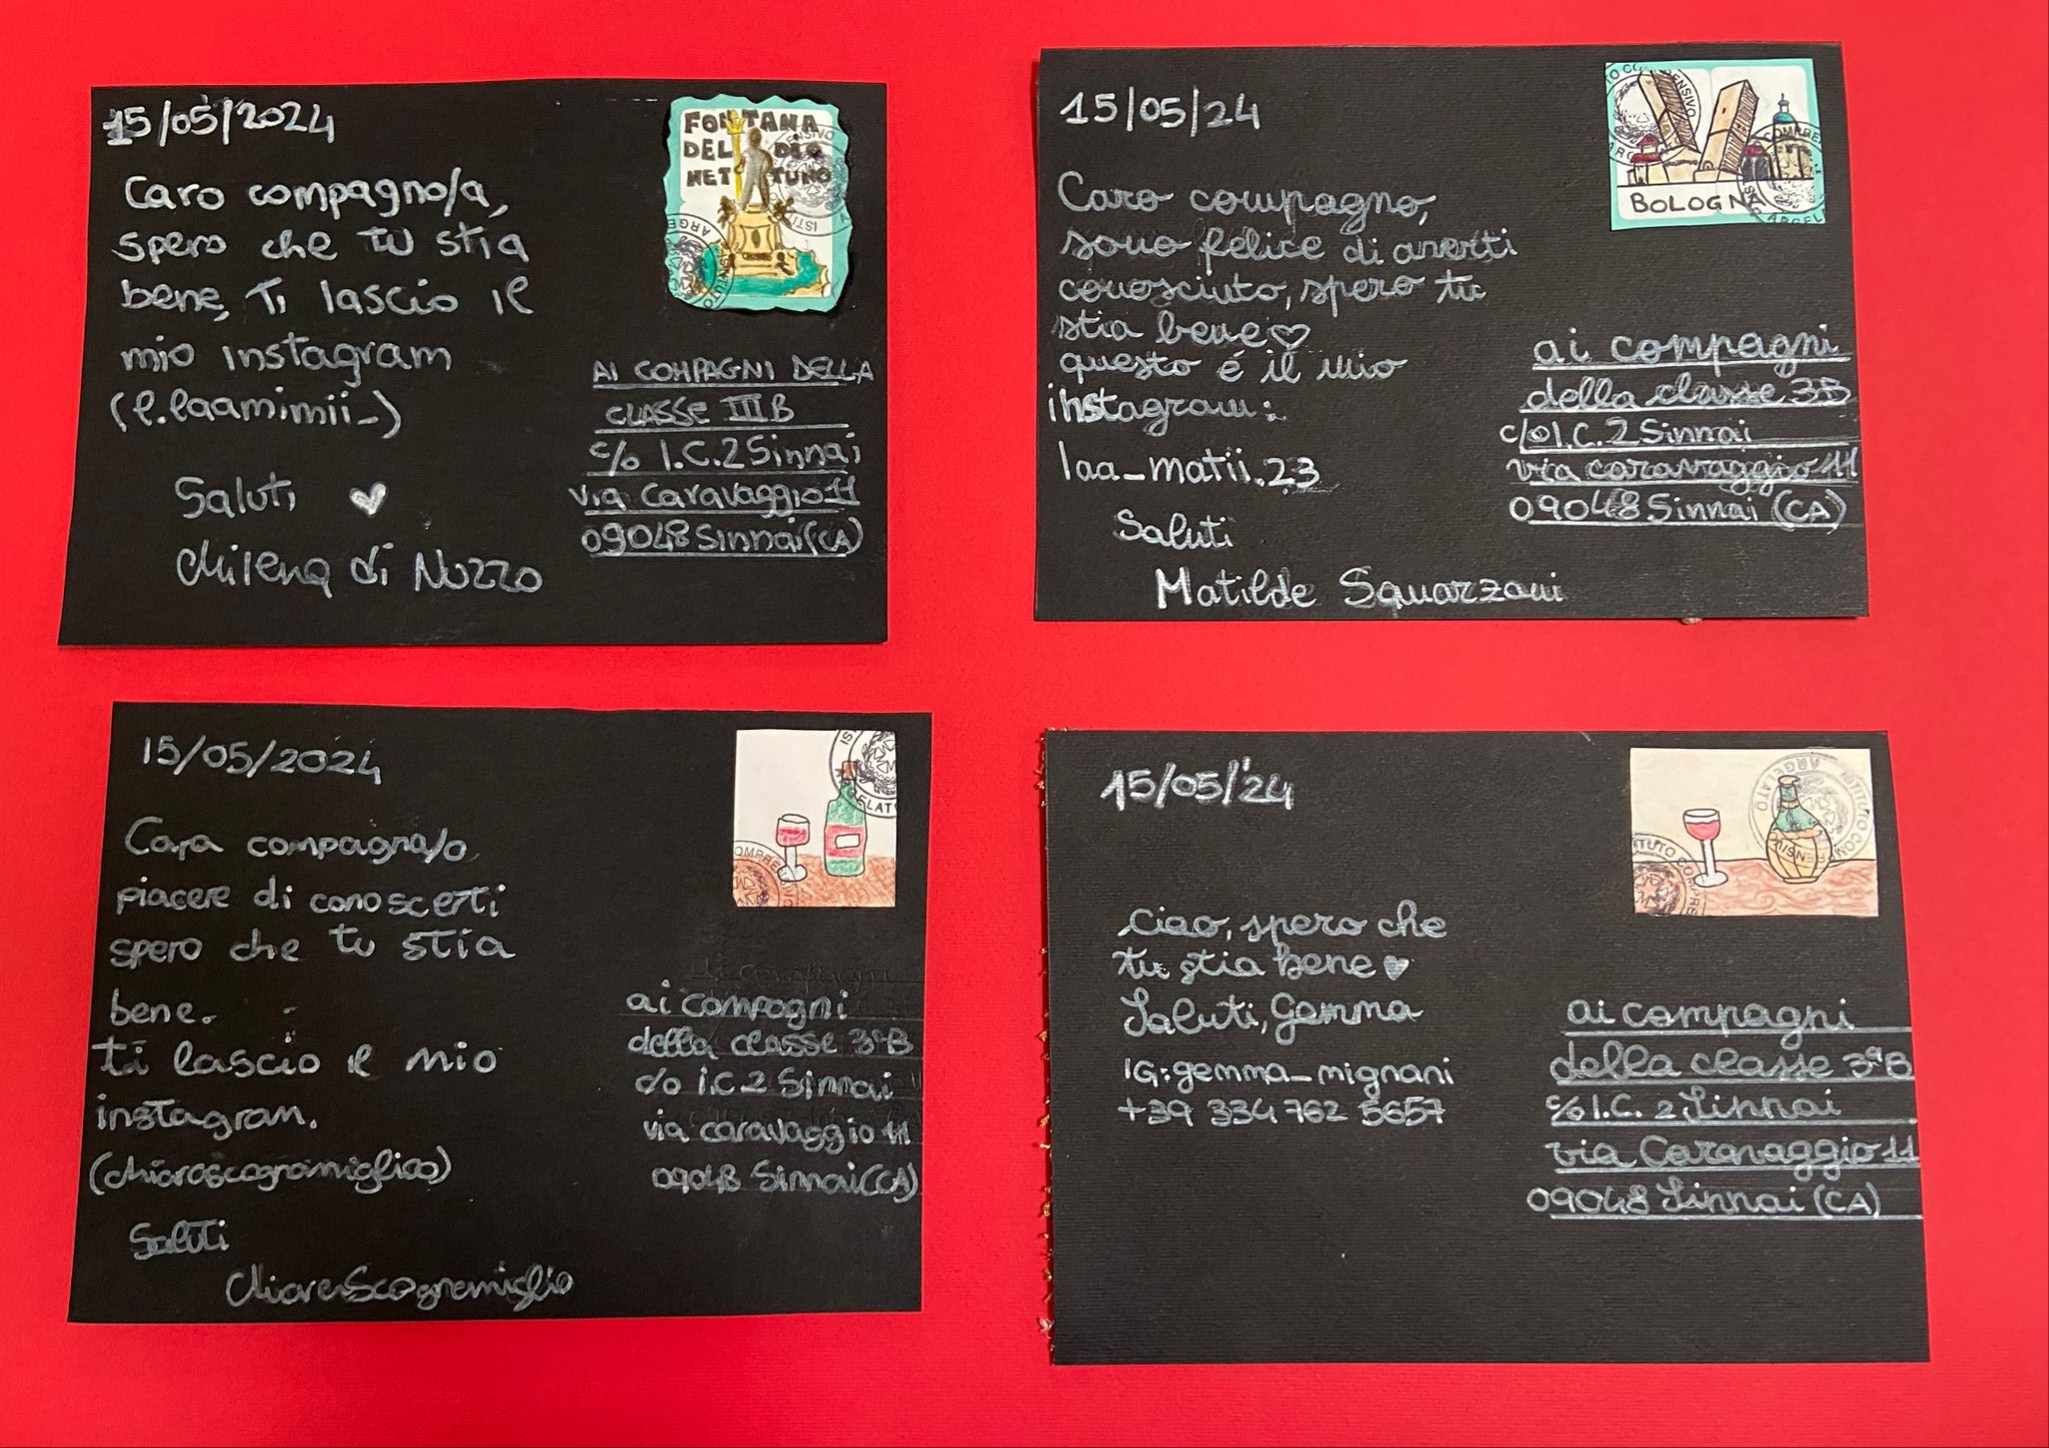 15/05/2024
Caro compagno/a,
spero che tu stia
bene, Ti lascio il
mio instagram
(l.laamimii_)
Saluti
Milena di Nuzzo
FONTANA
DEL DIO
NETTUNO
AI COMPAGNI DELLA
CLASSE III B
c/o I.C. 2 Sinnai
via Caravaggio 11
09048 Sinnai (CA)
15/05/24
Caro compagno,
sono felice di averti
conosciuto, spero tu
stia bene♡
questo é il mio
instagram:
laa_matii.23
Saluti
Matilde Squarzoni
BOLOGNA
ai compagni
della classe 3B
c/o I.C. 2 Sinnai
via caravaggio 11
09048 Sinnai (CA)
15/05/2024
Cara compagna/o
piacere di conoscerti
spero che tu stia
bene.
ti lascio il mio
instagram.
(chiarascognamiglioo)
Saluti
Chiara Scognamiglio
ai compagni
della classe 3ªB
c/o i.C 2 Sinnai
via caravaggio 11
09048 Sinnai (CA)
15/05/24
Ciao, spero che
tu stia bene ♥
Saluti, Gemma
IG: gemma_mignani
+39 334 762 5657
ai compagni
della classe 3ªB
c/o I.C. 2 Sinnai
via Caravaggio 11
09048 Sinnai (CA)